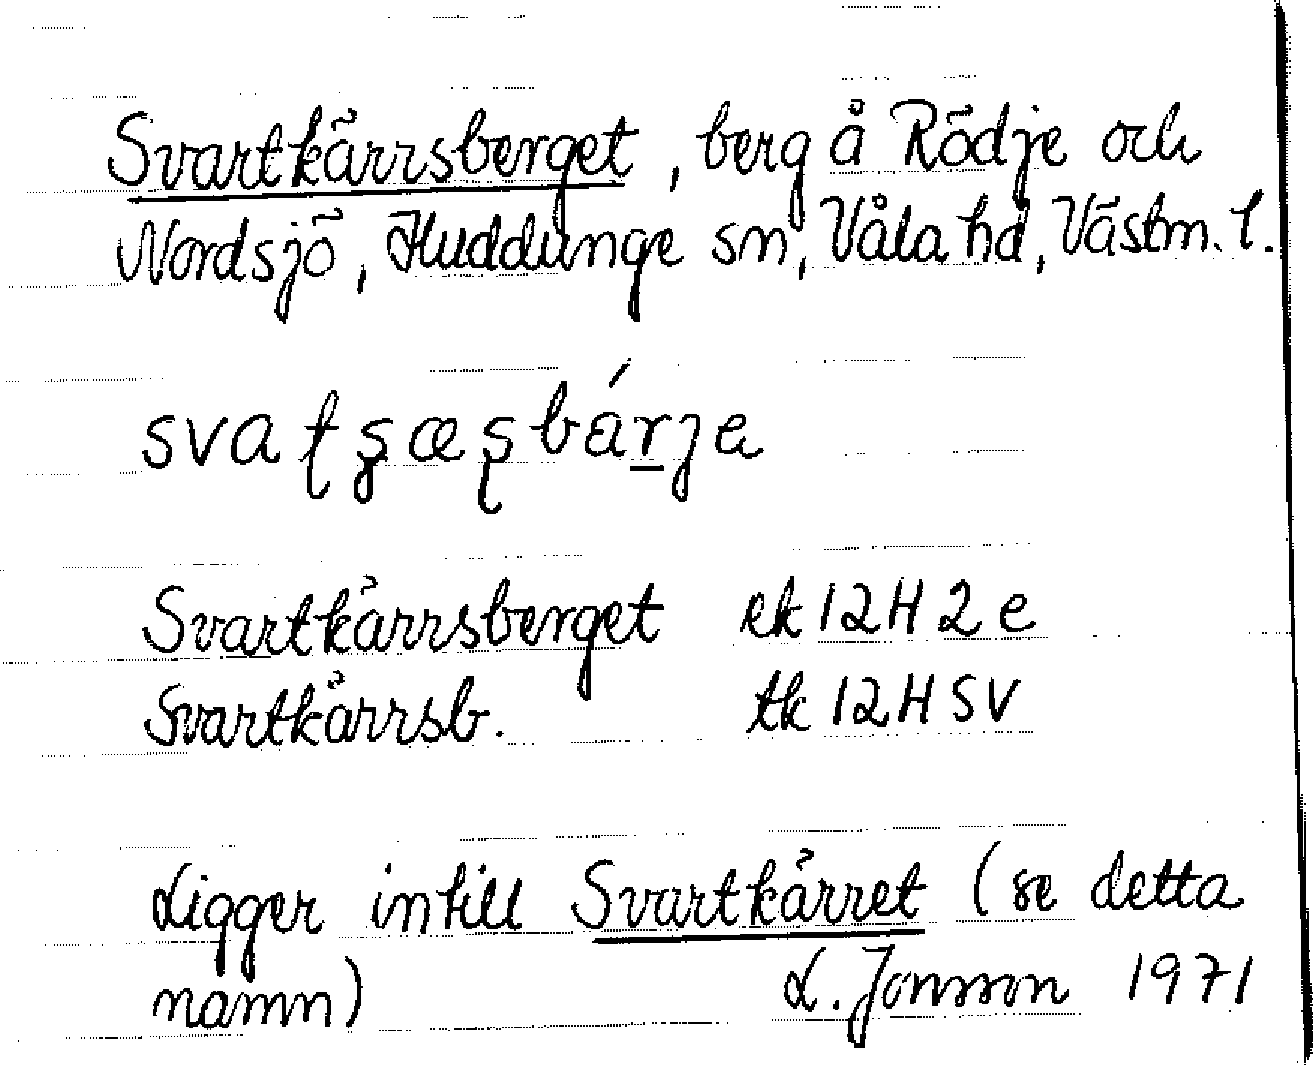 Svartkärrsberget, berg å Rödje och
Nordsjö, Huddunge sn, Våla hd, Västm. l.
Svartkärrsberget ek 12H 2e
Svartkärrsb. tk 12H SV
Ligger intill Svartkärret (se detta
namn) L. Jonsson 1971